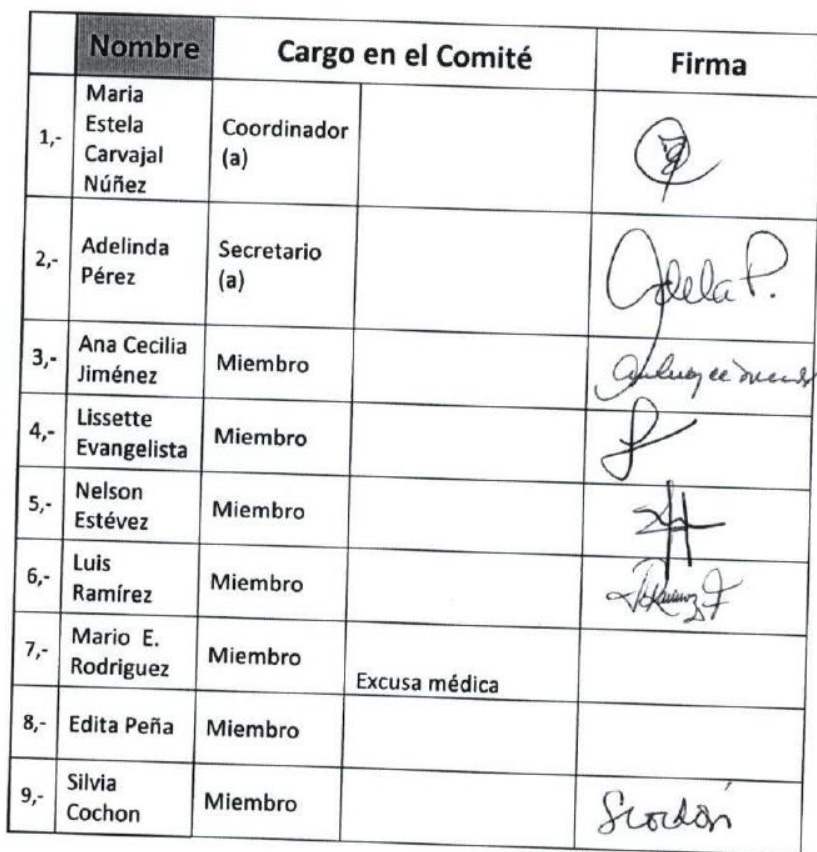 Nombre Cargo en el Comité Firma
Maria
Estela
Carvajal
Núñez
1,-
Coordinador
(a)
2,-
Adelinda
Pérez
Secretario
(a)
Adela P.
3,-
Ana Cecilia
Jiménez
Miembro
4,-
Lissette
Evangelista
Miembro
5,-
Nelson
Estévez
Miembro
6,-
Luis
Ramírez
Miembro
7,-
Mario E.
Rodriguez
Miembro
Excusa médica
8,- Edita Peña Miembro
9,-
Silvia
Cochon
Miembro